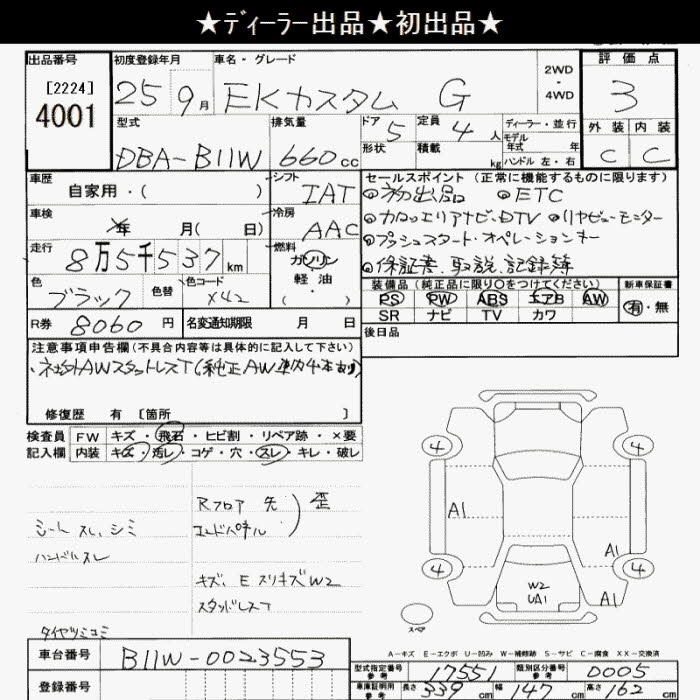 ★ディーラー出品★初出品★
出品番号 初度登録年月 車名・グレード 評価点
[2224]
4001
25 9月 EKカスタム G 2WD・4WD 3
型式 排気量 ドア 5 定員 4人 ディーラー・並行 外装 内装
モデル年式 年
DBA-B11W 660cc 形状 積載 kg ハンドル 左・右 C C
車歴 自家用・( ) シフト IAT セールスポイント (正常に機能するものに限ります)
◎初出品 ◎ETC
車検 年 月( 日) 冷房 AAC ◎カロッエリアナビ、DTV ◎リヤビューモニター
走行 8万5千537km 燃料 ガソリン 軽油 ( ・ ) ◎プッシュスタート・オペレーションキー
◎保証書、取説、記録簿
色 ブラック 色替 色コード X42 装備品 (純正品に限り○をつけてください) 新車保証書
PS PW ABS エアB AW 有・無
SR ナビ TV カワ
R券 8060円 名変通知期限 月 日 後日品
注意事項申告欄(不具合内容等は具体的に記入して下さい)
・社外AWスタットレスT(純正AW車内4本あり)
修復歴 有 [箇所 ]
検査員 FW キズ・飛石・ヒビ割・リペア跡・×要
記入欄 内装 キズ・汚レ・コゲ・穴・スレ・キレ・破レ
Rフロア 先 歪
エンドパネル
シート スレ、シミ
ハンドルスレ
キズ、E スリキズW2
スタッドレスT
タイヤツミコミ
4 4
A1
A1
4 4
W2
UA1 A1
スペア
A-キズ E-エクボ U-凹み W-補修跡 S-サビ C-腐食 XX-交換済
車台番号 B11W-0023553
型式指定番号参考 17551 類別区分番号参考 0005
登録番号 車庫証明用参考 長さ 339cm 幅 147cm 高さ 162cm